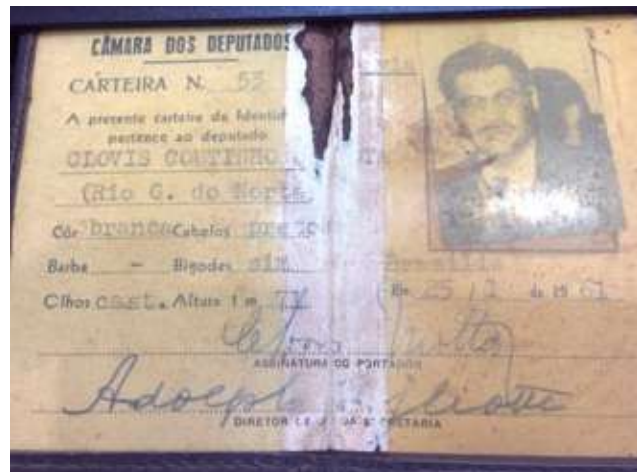 CÂMARA DOS DEPUTADOS
CARTEIRA N. 53
A presente carteira de Identid
pertence ao deputado
CLOVIS COUTINHO
(Rio G. do Norte
Côr branca Cabelos pretos
Barba — Bigodes sim
Olhos cast. Altura 1 m 71 Em 25 / 1 de 19 61
ASSINATURA DO PORTADOR
DIRETOR SECRETARIA